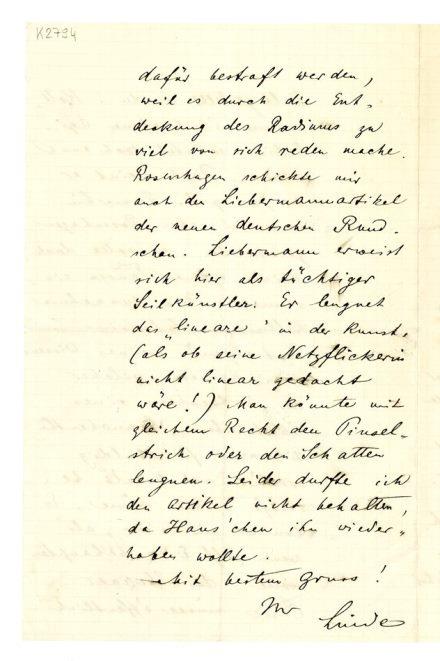 K2794
dafür bestraft werden,
weil es durch die Ent-
deckung des Radiums zu
viel von sich reden mache.
Rosenhagen schickte mir
auch den Liebermannartikel
der neuen deutschen Rund-
schau. Liebermann erweist
sich hier als tüchtiger
Seilkünstler. Er leugnet
das „lineare" in der Kunst,
(als ob seine Netzflickerin
nicht linear gedacht
wäre!) Man könnte mit
gleichem Recht den Pinsel-
strich oder den Schatten
leugnen. Leider durfte ich
den Artikel nicht behalten,
da Hans'chen ihn wieder-
haben wollte.
Mit bestem Gruss!
Ihr
Linde